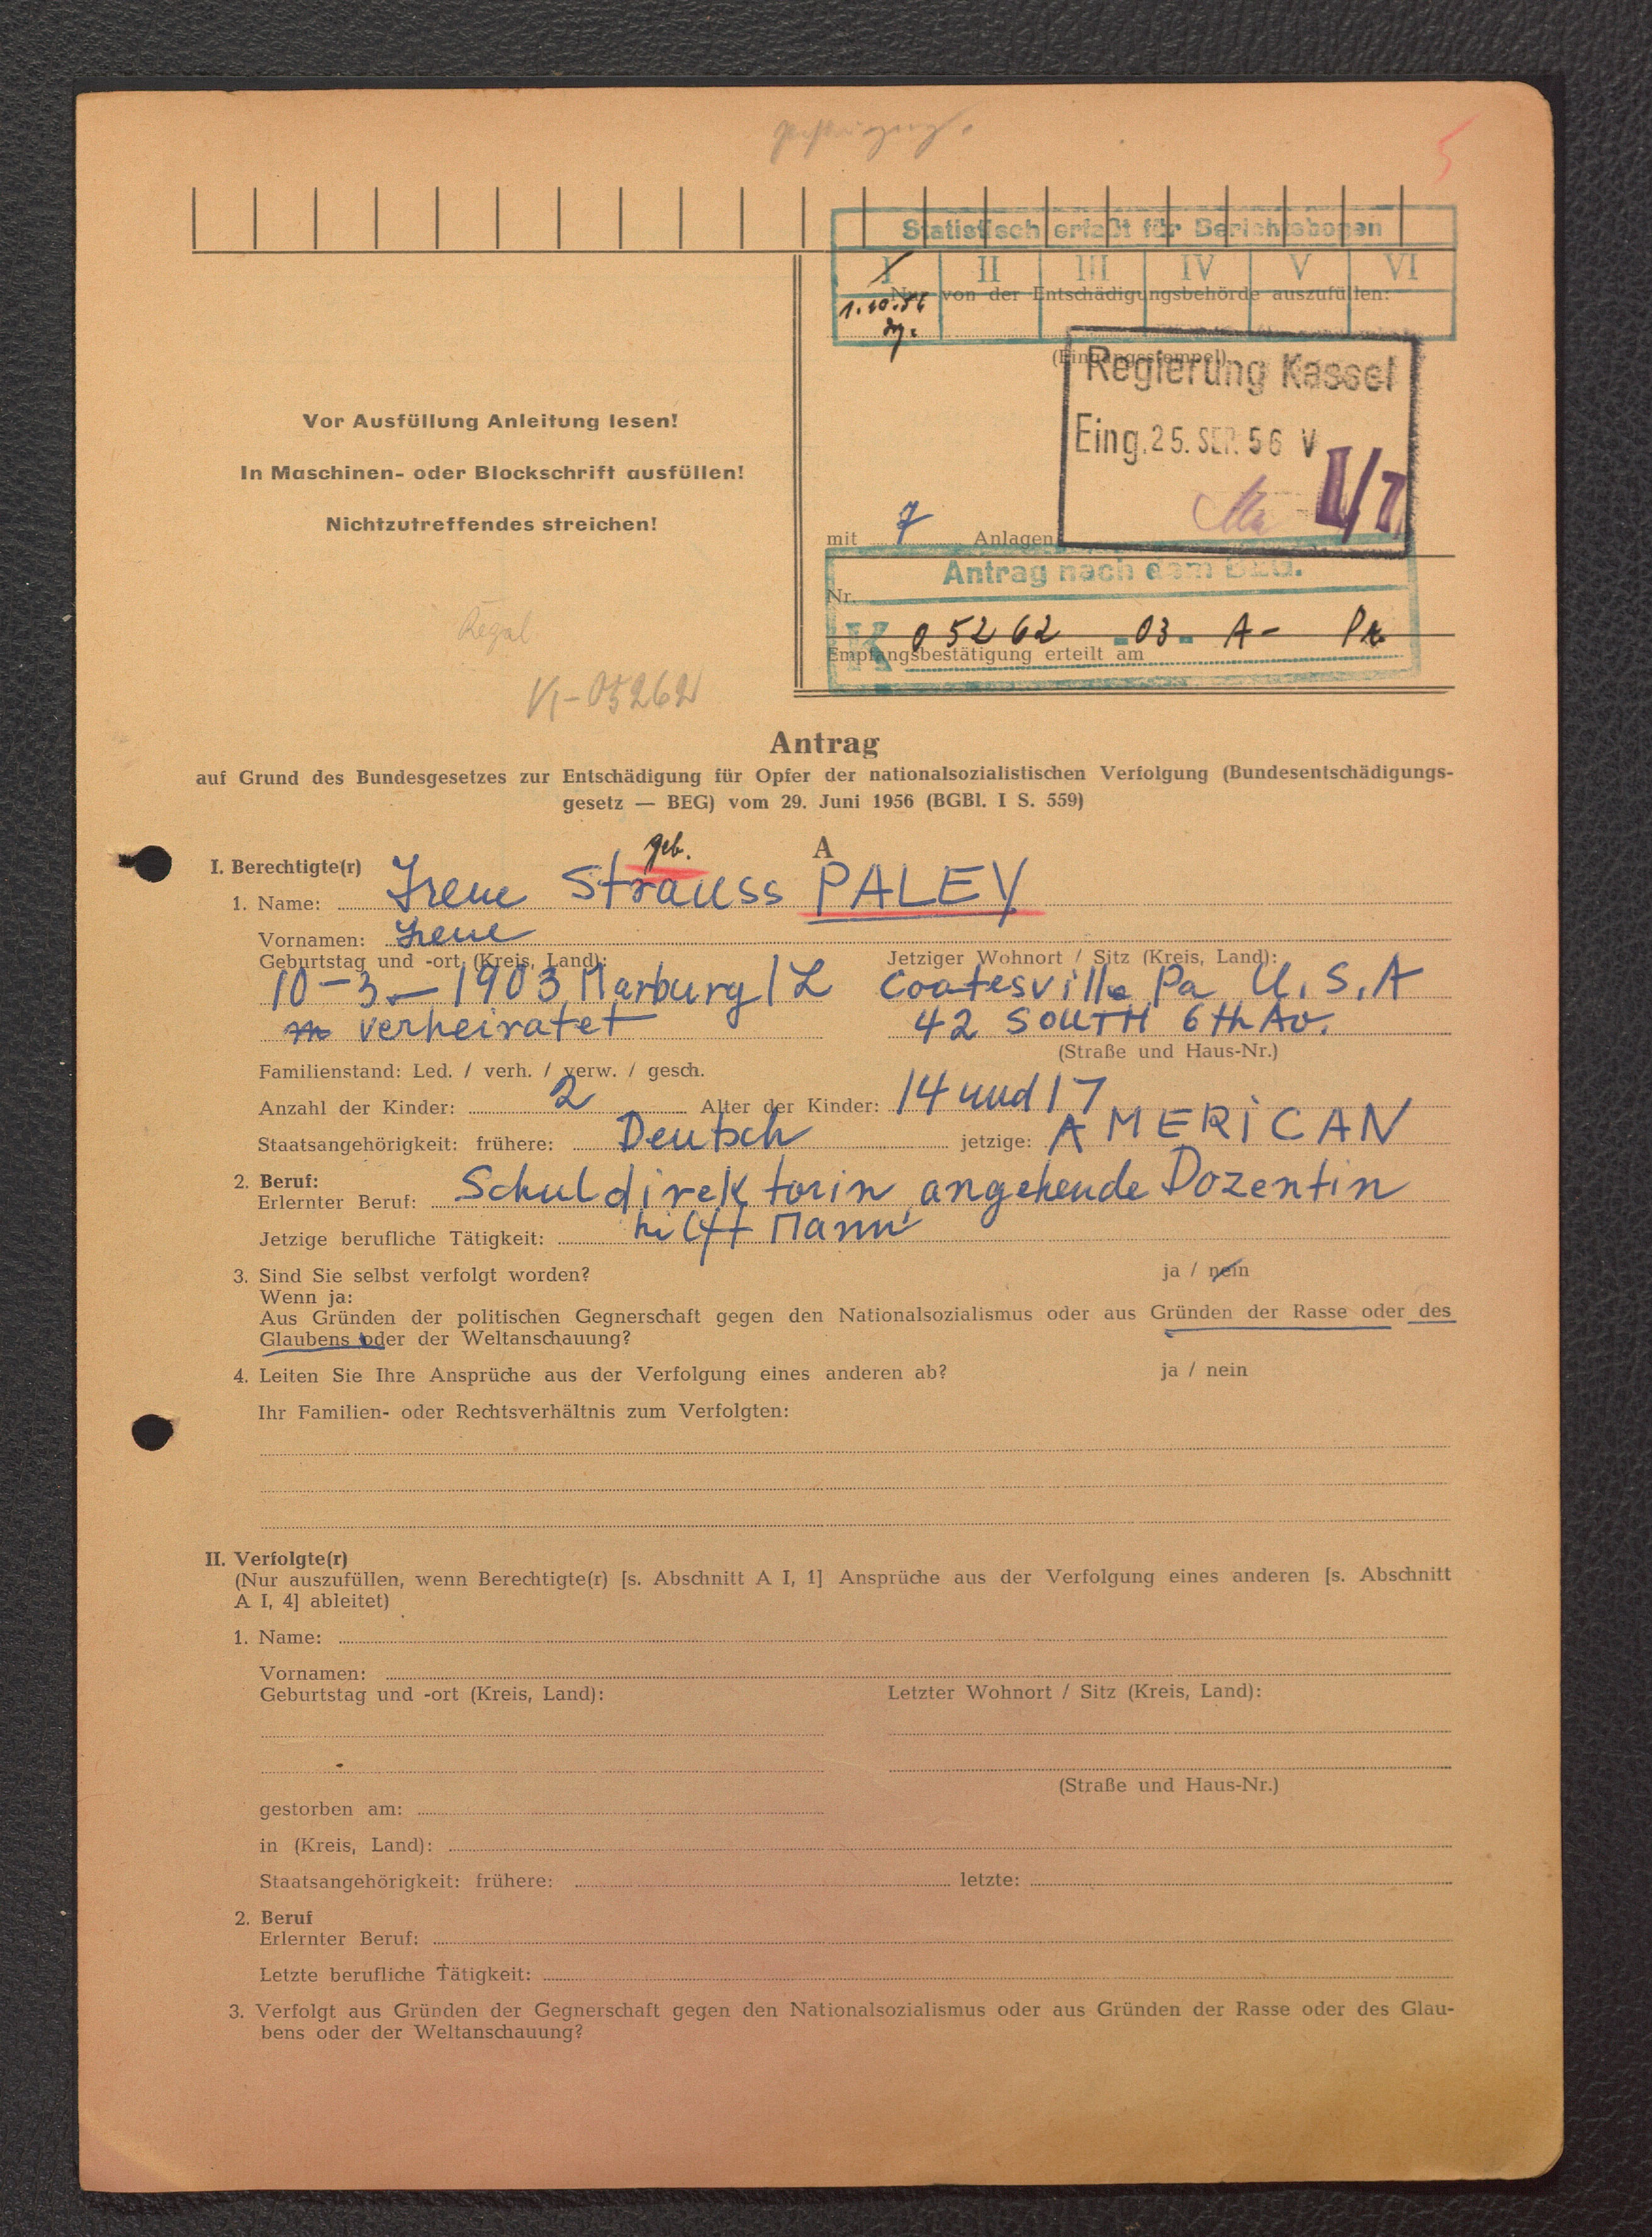 5
Statistisch erfaßt für Berichtsbogen
I II III IV V VI
Nur von der Entschädigungsbehörde auszufüllen:
1.10.56
(Eingangsstempel)
Regierung Kassel
Eing. 25. SEP. 56 V
I/7
Vor Ausfüllung Anleitung lesen!
In Maschinen- oder Blockschrift ausfüllen!
Nichtzutreffendes streichen!
mit 7 Anlagen
Antrag nach dem BEG.
Nr.
K 05262 - 03 - A -
Empfangsbestätigung erteilt am
Regal
K-05262
Antrag
auf Grund des Bundesgesetzes zur Entschädigung für Opfer der nationalsozialistischen Verfolgung (Bundesentschädigungs-
gesetz — BEG) vom 29. Juni 1956 (BGBl. I S. 559)
A
I. Berechtigte(r)
geb.
1. Name: Irene Strauss PALEY
Vornamen: Irene
Geburtstag und -ort (Kreis, Land): Jetziger Wohnort / Sitz (Kreis, Land):
10-3-1903 Marburg/L Coatesville Pa U.S.A
verheiratet 42 SOUTH 6th Av.
(Straße und Haus-Nr.)
Familienstand: Led. / verh. / verw. / gesch.
Anzahl der Kinder: 2 Alter der Kinder: 14 und 17
Staatsangehörigkeit: frühere: Deutsch jetzige: AMERICAN
2. Beruf:
Erlernter Beruf: Schuldirektorin, angehende Dozentin
Jetzige berufliche Tätigkeit: hilft Mann
3. Sind Sie selbst verfolgt worden? ja / nein
Wenn ja:
Aus Gründen der politischen Gegnerschaft gegen den Nationalsozialismus oder aus Gründen der Rasse oder des
Glaubens oder der Weltanschauung?
4. Leiten Sie Ihre Ansprüche aus der Verfolgung eines anderen ab? ja / nein
Ihr Familien- oder Rechtsverhältnis zum Verfolgten:
II. Verfolgte(r)
(Nur auszufüllen, wenn Berechtigte(r) [s. Abschnitt A I, 1] Ansprüche aus der Verfolgung eines anderen [s. Abschnitt
A I, 4] ableitet)
1. Name:
Vornamen:
Geburtstag und -ort (Kreis, Land): Letzter Wohnort / Sitz (Kreis, Land):
(Straße und Haus-Nr.)
gestorben am:
in (Kreis, Land):
Staatsangehörigkeit: frühere: letzte:
2. Beruf
Erlernter Beruf:
Letzte berufliche Tätigkeit:
3. Verfolgt aus Gründen der Gegnerschaft gegen den Nationalsozialismus oder aus Gründen der Rasse oder des Glau-
bens oder der Weltanschauung?